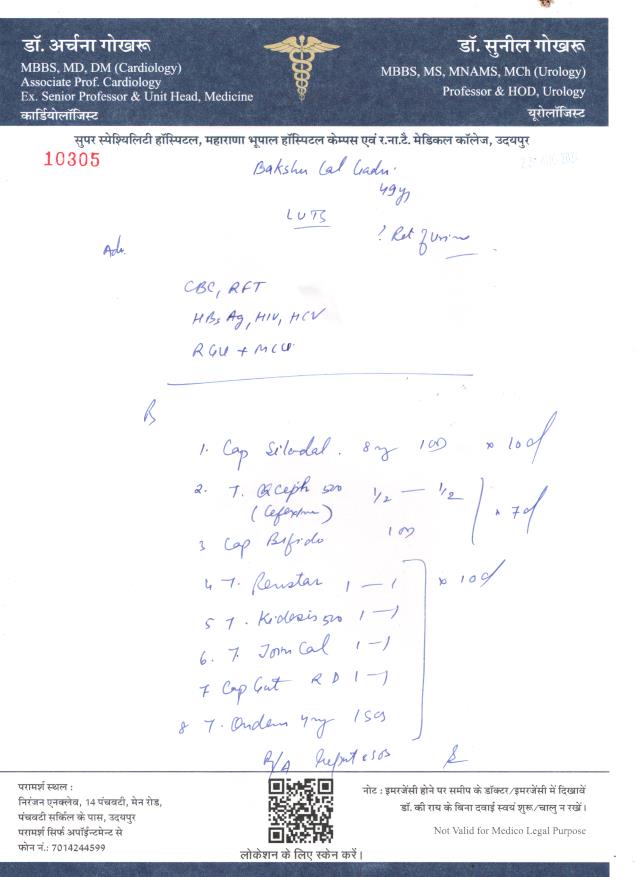 डॉ. अर्चना गोखरू
MBBS, MD, DM (Cardiology)
Associate Prof. Cardiology
Ex. Senior Professor & Unit Head, Medicine
कार्डियोलॉजिस्ट
डॉ. सुनील गोखरू
MBBS, MS, MNAMS, MCh (Urology)
Professor & HOD, Urology
यूरोलॉजिस्ट
सुपर स्पेश्यिलिटी हॉस्पिटल, महाराणा भूपाल हॉस्पिटल केम्पस एवं र.ना.टै. मेडिकल कॉलेज, उदयपुर
10305
Lal
49y
LUTS
? Ret of urine
Adv.
CBC, RFT
HBsAg, HIV, HCV
RGU + MCU
R
1. Cap Silodal . 8mg 1OD x 10d
2. T. 500 1/2 — 1/2
x 7d
3 Cap Bifido 1OD
4 T. Renstar 1 — 1 x 10d
5 T. 500 1 — 1
6. T. Cal 1 — 1
7 Cap Gut RD 1 — 1
8 T. Ondem 4mg 1 SOS
R/A Report & SOS
परामर्श स्थल :
निरंजन एनक्लेव, 14 पंचवटी, मेन रोड,
पंचवटी सर्किल के पास, उदयपुर
परामर्श सिर्फ अपॉईन्टमेन्ट से
फोन नं.: 7014244599
लोकेशन के लिए स्केन करें।
नोट : इमरजेंसी होने पर समीप के डॉक्टर/इमरजेंसी में दिखावें
डॉ. की राय के बिना दवाई स्वयं शुरू/चालु न रखें।
Not Valid for Medico Legal Purpose